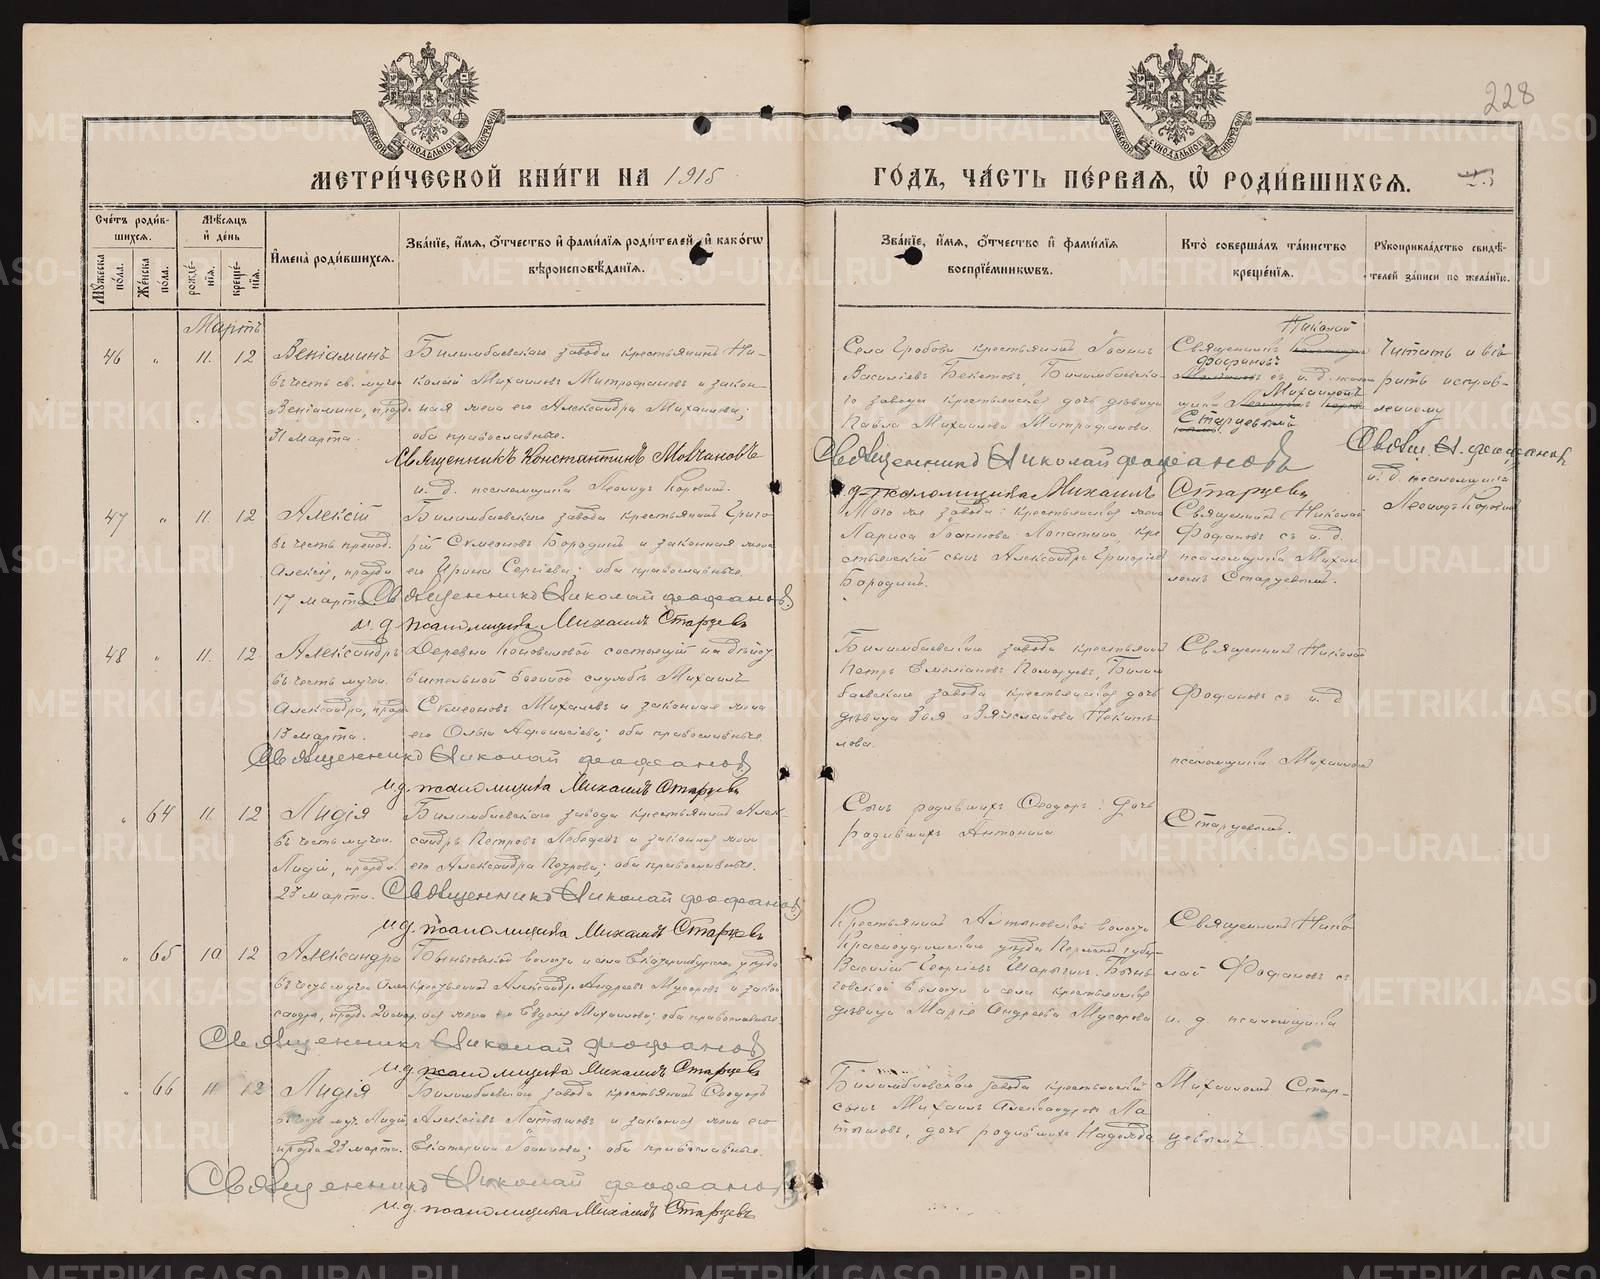 228
МЕТРИ́ЧЕСКОЙ КНИ́ГИ НА 1915
ГО́ДЪ, ЧА́СТЬ ПЕ́РВАЯ, Ѡ҆ РОДИ́ВШИХСЯ.
Сче́тъ роди́в-
шихся.
Мѣ́сяцъ
и҆ де́нь
И҆мена̀ роди́вшихся.
Зва́нїе, и҆́мя, ѻ҆́тчество и҆ фами́лїя роди́телей, и҆ како́гѡ
вѣроисповѣ́данїя.
Зва́нїе, и҆́мя, ѻ҆́тчество и҆ фами́лїя
воспрїе́мникѡвъ.
Кто̀ соверша́лъ та́инство
креще́нїя.
Рꙋкоприкла́дство свидѣ́-
телей за́писи по жела́нїю.
Мꙋ́жеска по́ла.
Же́нска по́ла.
рожде́-нїя.
креще́-нїя.
Мартъ
46 " 11. 12
Веніаминъ
въ честь св. муче
Веніамина, празд
31 марта.
Билимбаевскаго завода крестьянинъ Ни-
колай Михаиловъ Митрофановъ и закон-
ная жена его Александра Михаилова;
оба православные.
Священникъ Константинъ Молчановъ
и. д. псаломщика Леонидъ Коровинъ.
Села Гробова крестьянинъ Іоаннъ
Василіевъ Бекетовъ, Билимбаевска-
го завода крестьянская дочь дѣвица
Павла Михаилова Митрофанова.
Николай
Священникъ
Фофановъ
съ и. д. псалом
Михаиломъ
щика
Старцевымъ
Читать и вѣ-
рить исправ-
ленному
Священникъ Николай Фофановъ
и. д. псаломщика Михаилъ Старцевъ
Свящ. Н. Фофановъ
и. д. псаломщика
Леонидъ Коровинъ
47 " 11. 12
Алексій
въ честь препод.
Алексія, праздн.
17 марта.
Билимбаевскаго завода крестьянинъ Григо-
рій Симеоновъ Бородинъ и законная жена
его Ирина Сергіева; оба православные.
Священникъ Николай Фофановъ
и. д. псаломщика Михаилъ Старцевъ
Того же завода: крестьянская жена
Лариса Іоаннова Лопатина, кре
стьянскій сынъ Александръ Григоріевъ
Бородинъ.
Священникъ Николай
Фофановъ съ и. д.
псаломщика Михаи
ломъ Старцевымъ.
48 " 11. 12.
Александръ
въ честь мучен.
Александра, празд.
13 марта.
Деревни Коноваловой состоящій на дѣйст
вительной военной службѣ Михаилъ
Симеоновъ Михалевъ и законная жена
его Ольга Афанасіева; оба православные.
Священникъ Николай Фофановъ
и. д. псаломщика Михаилъ Старцевъ
Билимбаевскаго завода крестьянинъ
Петръ Емеліановъ Комарцевъ, Билим
баевскаго завода, крестьянская дочь
дѣвица Зоя Вячеславова
лова.
Священникъ Николай
Фофановъ съ и. д
псаломщика Михаиломъ
Старцевымъ.
" 64 11. 12
Лидія
въ честь мучен.
Лидіи, празд.
23 марта.
Билимбаевскаго завода крестьянинъ Алек-
сандръ Петровъ Лебедевъ и законная жена
его Александра Петрова; оба православные.
Священникъ Николай Фофановъ
и. д. псаломщика Михаилъ Старцевъ
Сынъ родившихъ Ѳеодоръ; Дочь
родившихъ Антонина.
" 65 10. 12
Александра
въ честь мучен Алек
сандры, празд. 20 мар.
Быньговской волости и села Екатеринбургскаго уѣзда
крестьянинъ Александръ Андреевъ Мусоровъ и закон
ная жена его Евдокія Михаилова; оба православные
Священникъ Николай Фофановъ
и. д. псаломщика Михаилъ Старцевъ
Крестьянинъ Алтыновской волости
Красноуфимскаго уѣзда Пермской губер-
Василій Георгіевъ Шарыгинъ. Бынь
говской волости и села крестьянская
дѣвица Марія Андреева Мусорова
Священникъ Нико
лай Фофановъ съ
и. д. псаломщика
" 66 11. 12
Лидія
въ честь муч. Лидіи
празд. 23 марта.
Билимбаевскаго завода крестьянинъ Ѳеодоръ
Алексіевъ Латышовъ и законная жена его
Екатерина Іоаннова; оба православные.
Священникъ Николай Фофановъ
и. д. псаломщика Михаилъ Старцевъ
Билимбаевскаго завода крестьянскій
сынъ Михаилъ Александровъ Ла
тышовъ, дочь родившихъ Надежда
Михаиломъ Стар-
цевымъ.
METRIKI.GASO-URAL.RU